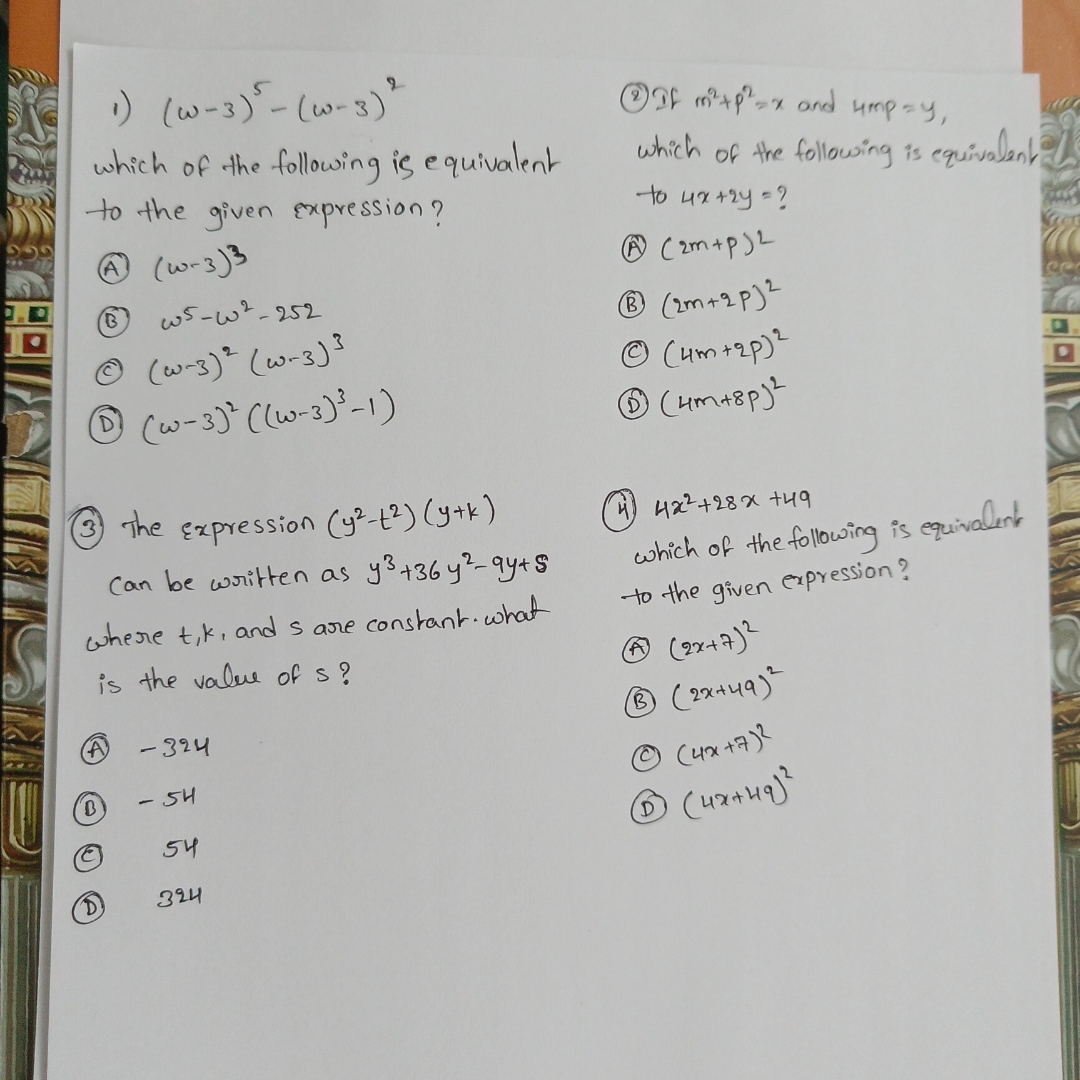 1) (w-3)⁵ - (w-3)²
which of the following is equivalent
to the given expression?
Ⓐ (w-3)³
Ⓑ w⁵-w²-252
Ⓒ (w-3)² (w-3)³
Ⓓ (w-3)² ((w-3)³-1)
② If m²+p²=x and 4mp=y,
which of the following is equivalent
to 4x+2y=?
Ⓐ (2m+p)²
Ⓑ (2m+2p)²
Ⓒ (4m+2p)²
Ⓓ (4m+8p)²
③ The expression (y²-t²)(y+k)
can be written as y³+36y²-9y+s
where t,k, and s are constant. what
is the value of s?
Ⓐ -324
Ⓑ -54
Ⓒ 54
Ⓓ 324
④ 4x²+28x+49
which of the following is equivalent
to the given expression?
Ⓐ (2x+7)²
Ⓑ (2x+49)²
Ⓒ (4x+7)²
Ⓓ (4x+49)²